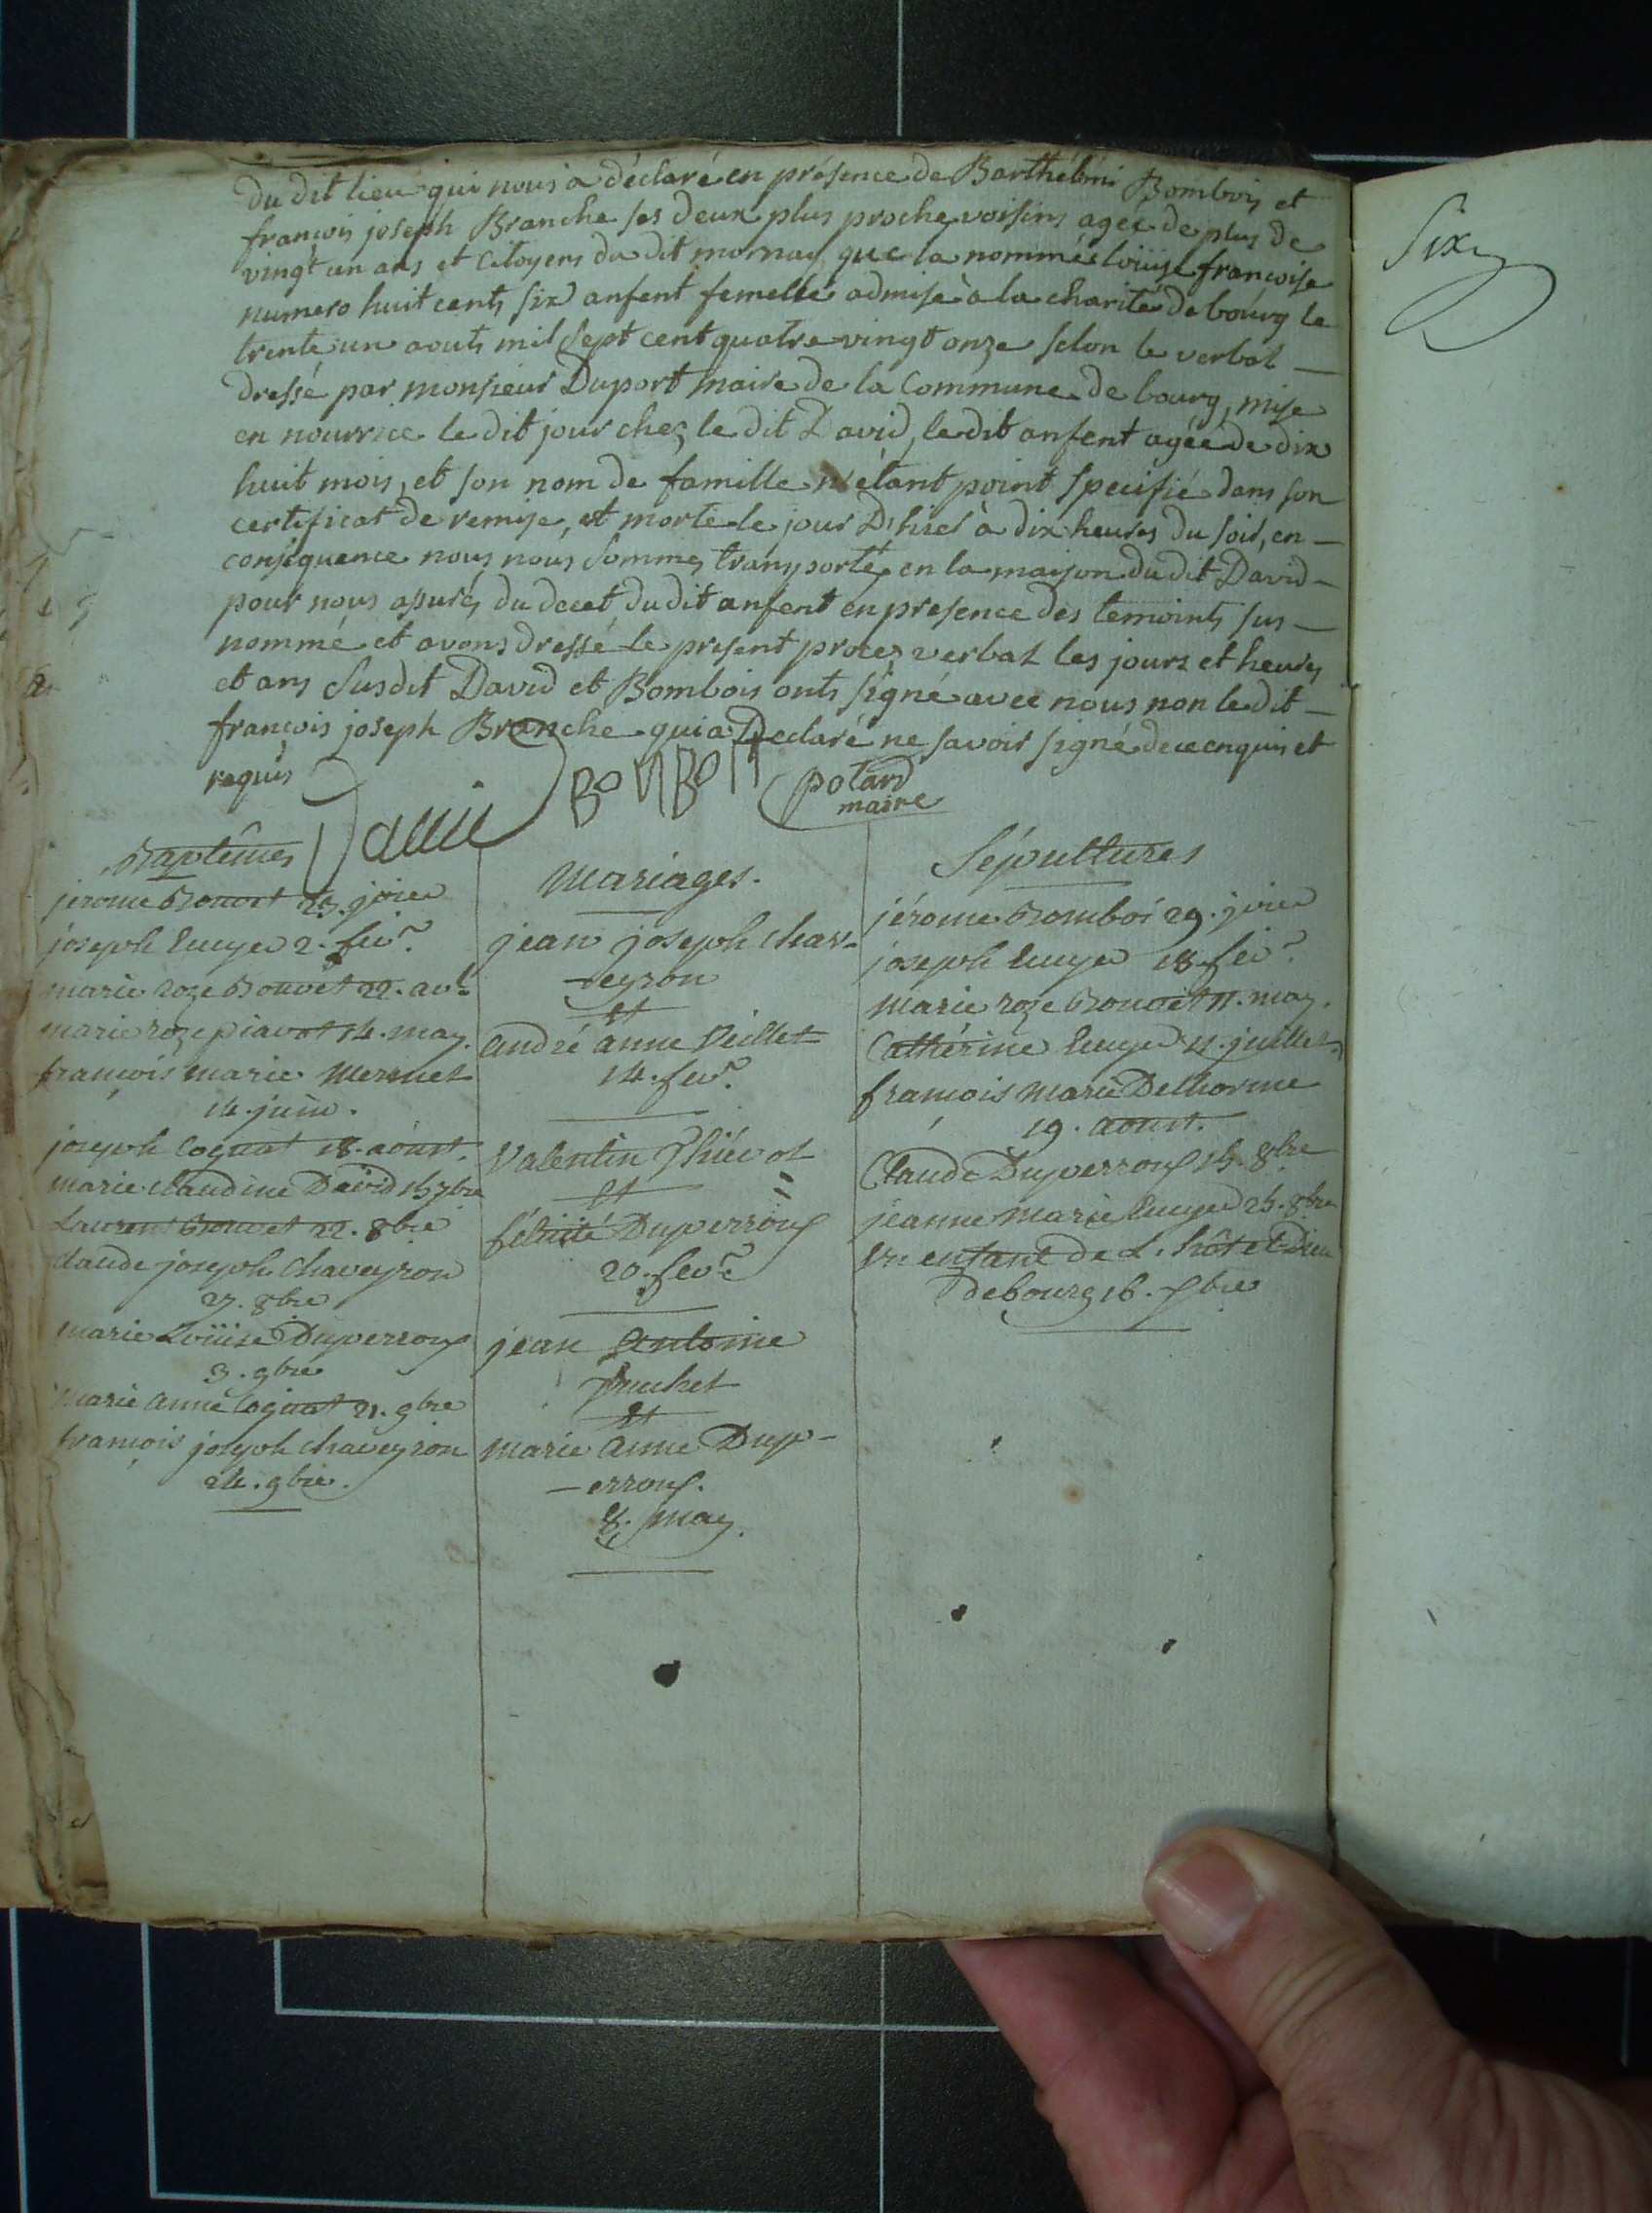 du dit lieu qui nous a déclaré en présence de Barthélémi Bombois et
françois joseph Branche ses deux plus proche voisins agée de plus de
vingt un ans et citoyens du dit mornay que la nommée loüise francoise
numero huit cents six anfent femelle admise à la charité de bourg le
trente un aouts mil sept cent quatre vingt onze selon le verbal —
dressé par monsieur Duport maire de la commune de bourg, mise
en nourrice le dit jour chez le dit David, le dit anfent agée de dix
huit mois, et son nom de famille n'étant point specifié dans son
certificat de remise, est morte le jour D'hier à dix heures du soir, en —
conséquence nous nous sommes transporté en la maison du dit David —
pour nous assurés du decet du dit anfent en presence des temoints sus —
nommé et avons dressé le present procez verbal les jours et heures
et ans susdit David et Bombois onts signé avec nous non le dit —
françois joseph Branche qui a Declaré ne savoir signé de ce enquis et
requis
David BOMBOIS potard
maire
Baptêmes
jerome Bouvet 23. jvier
joseph Euyer 2. fevr.
marie roze Bouvet 22. avl
marie roze piavot 14. may.
françois marie Mermet
14. juin.
joseph Cognat 18. aoust.
marie claudine David 15 7bre
Laurent Bouvet 22. 8bre
claude joseph Chaveyron
27. 8bre
marie Loüise Duperrouf
3. 9bre
marie anne Cognat 21. 9bre
françois joseph chaveyron
24. 9bre.
Mariages.
jean joseph chav-
-eyron
Et
andré anne Veillet
14. fevr.
Valentin Thiévot
Et
félicité Duperrouf
20. fevr.
jean Antoine
Et
marie anne Dup-
-errouf.
8. may.
Sépultures
jérome Bomboi 29. jvier
joseph Euyer 18. fevr.
Marie roze Bouvet 11. may.
Cathérine Euyer 4. juillet
francois marie Delhorme
19. aoust.
Claude Duperrouf 15. 8bre
jeanne marie Euyer 25. 8bre
Un enfant de L'hôtel Dieu
de bourg 16. xbre
Six